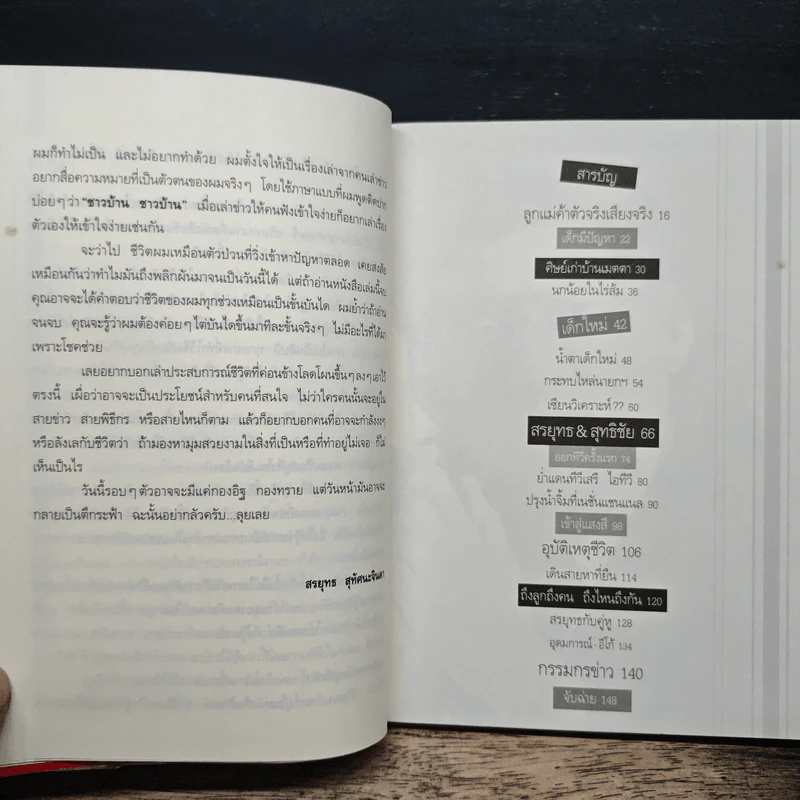 ผมก็ทำไม่เป็น และไม่อยากทำด้วย ผมตั้งใจให้เป็นเรื่องเล่าจากคนเล่าข่าว
อยากสื่อความหมายที่เป็นตัวตนของผมจริงๆ โดยใช้ภาษาแบบที่ผมพูดติดปาก
บ่อยๆว่า "ชาวบ้าน ชาวบ้าน" เมื่อเล่าข่าวให้คนฟังเข้าใจง่ายก็อยากเล่าเรื่อง
ตัวเองให้เข้าใจง่ายเช่นกัน
จะว่าไป ชีวิตผมเหมือนตัวป่วนที่วิ่งเข้าหาปัญหาตลอด เคยสงสัย
เหมือนกันว่าทำไมมันถึงพลิกผันมาจนเป็นวันนี้ได้ แต่ถ้าอ่านหนังสือเล่มนี้จบ
คุณอาจจะได้คำตอบว่าชีวิตของผมทุกช่วงเหมือนเป็นขั้นบันได ผมย้ำว่าถ้าอ่าน
จนจบ คุณจะรู้ว่าผมต้องค่อยๆไต่บันไดขึ้นมาทีละขั้นจริงๆ ไม่มีอะไรที่ได้มา
เพราะโชคช่วย
เลยอยากบอกเล่าประสบการณ์ชีวิตที่ค่อนข้างโลดโผนขึ้นๆลงๆเอาไว้
ตรงนี้ เผื่อว่าอาจจะเป็นประโยชน์สำหรับคนที่สนใจ ไม่ว่าใครคนนั้นจะอยู่ใน
สายข่าว สายพิธีกร หรือสายไหนก็ตาม แล้วก็อยากบอกคนที่อาจจะกำลังงงๆ
หรือลังเลกับชีวิตว่า ถ้ามองหามุมสวยงามในสิ่งที่เป็นหรือที่ทำอยู่ไม่เจอ ก็ไม่
เห็นเป็นไร
วันนี้รอบๆตัวอาจจะมีแค่กองอิฐ กองทราย แต่วันหน้ามันอาจจะ
กลายเป็นตึกระฟ้า ฉะนั้นอย่ากลัวครับ...ลุยเลย
สรยุทธ สุทัศนะจินดา
สารบัญ
ลูกแม่ค้าตัวจริงเสียงจริง 16
เด็กมีปัญหา 22
ศิษย์เก่าบ้านเมตตา 30
นกน้อยในไร่ส้ม 36
เด็กใหม่ 42
น้ำตาเด็กใหม่ 48
กระทบไหล่นายกฯ 54
เซียนวิเคราะห์?? 60
สรยุทธ & สุทธิชัย 66
ออกทีวีครั้งแรก 74
ย่ำแดนทีวีเสรี ไอทีวี 80
ปรุงน้ำจิ้มที่เนชั่นแชนแนล 90
เข้าสู่แสงสี 98
อุบัติเหตุชีวิต 106
เดินสายหาที่ยืน 114
ถึงลูกถึงคน ถึงไหนถึงกัน 120
สรยุทธกับคู่หู 128
อุดมการณ์-อีโก้ 134
กรรมกรข่าว 140
จับฉ่าย 148